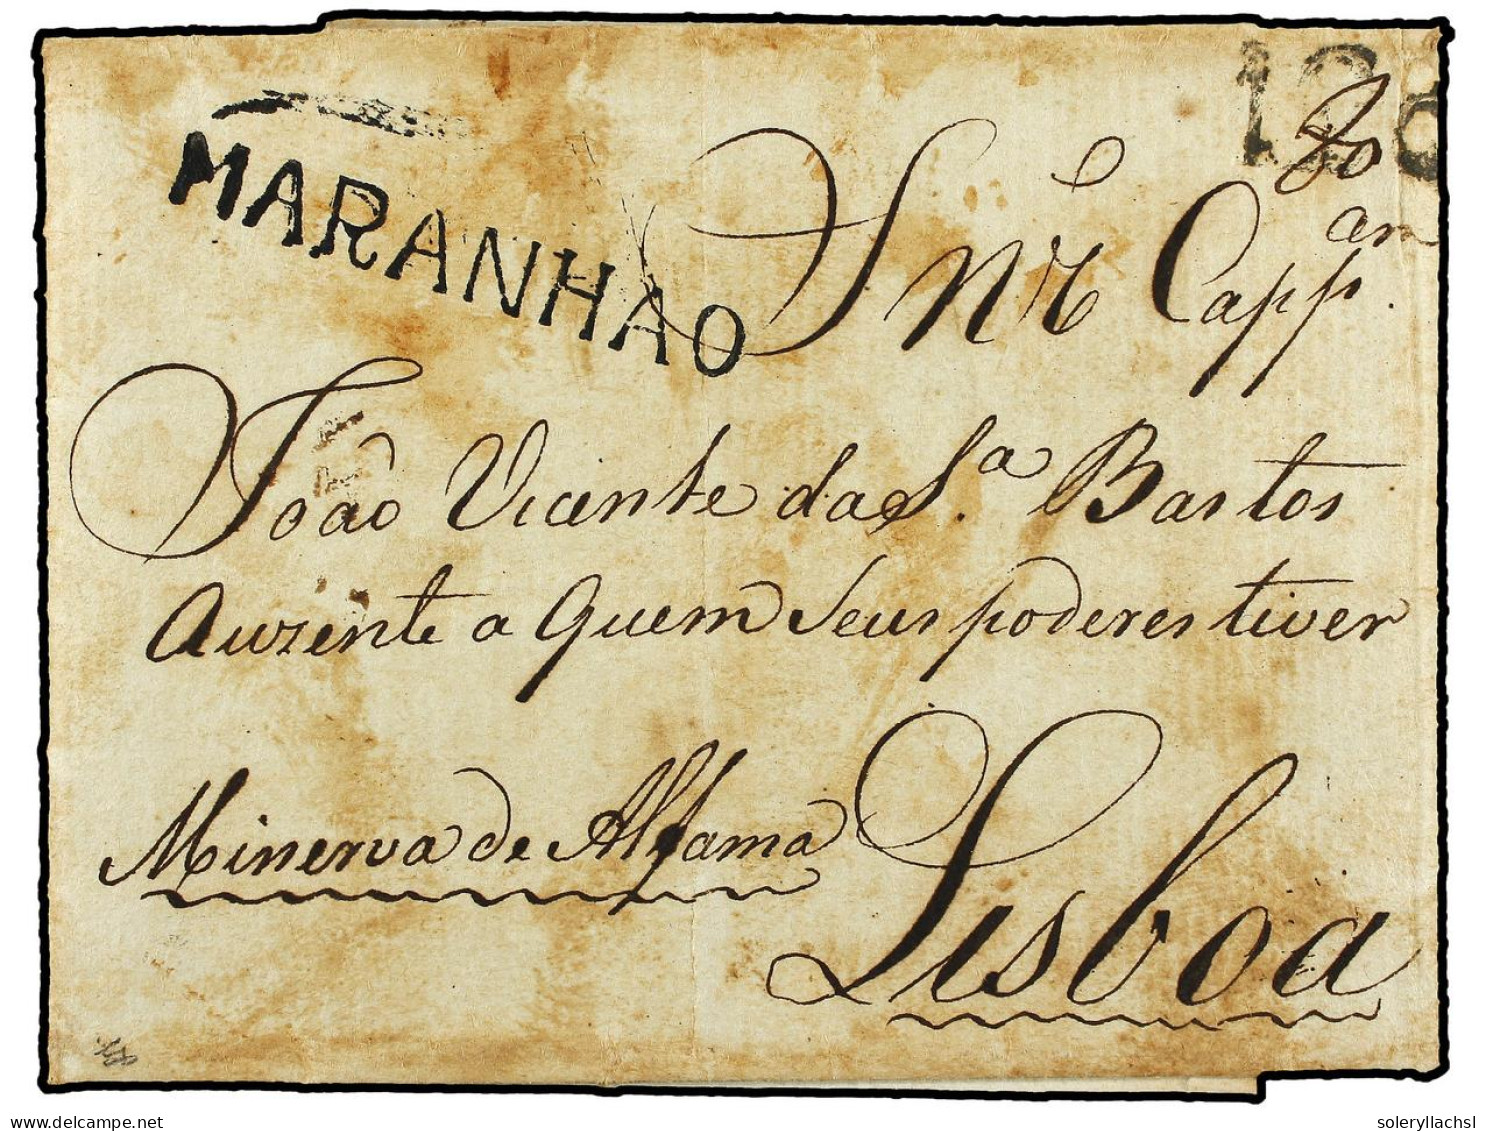 MARANHAO
120
Snr. Capp.
João Vicente da S.ª Bastos
Auzente a quem Seus poderes tiver
Minerva de Alfama
Lisboa
delcampe.net
soleryllachsl